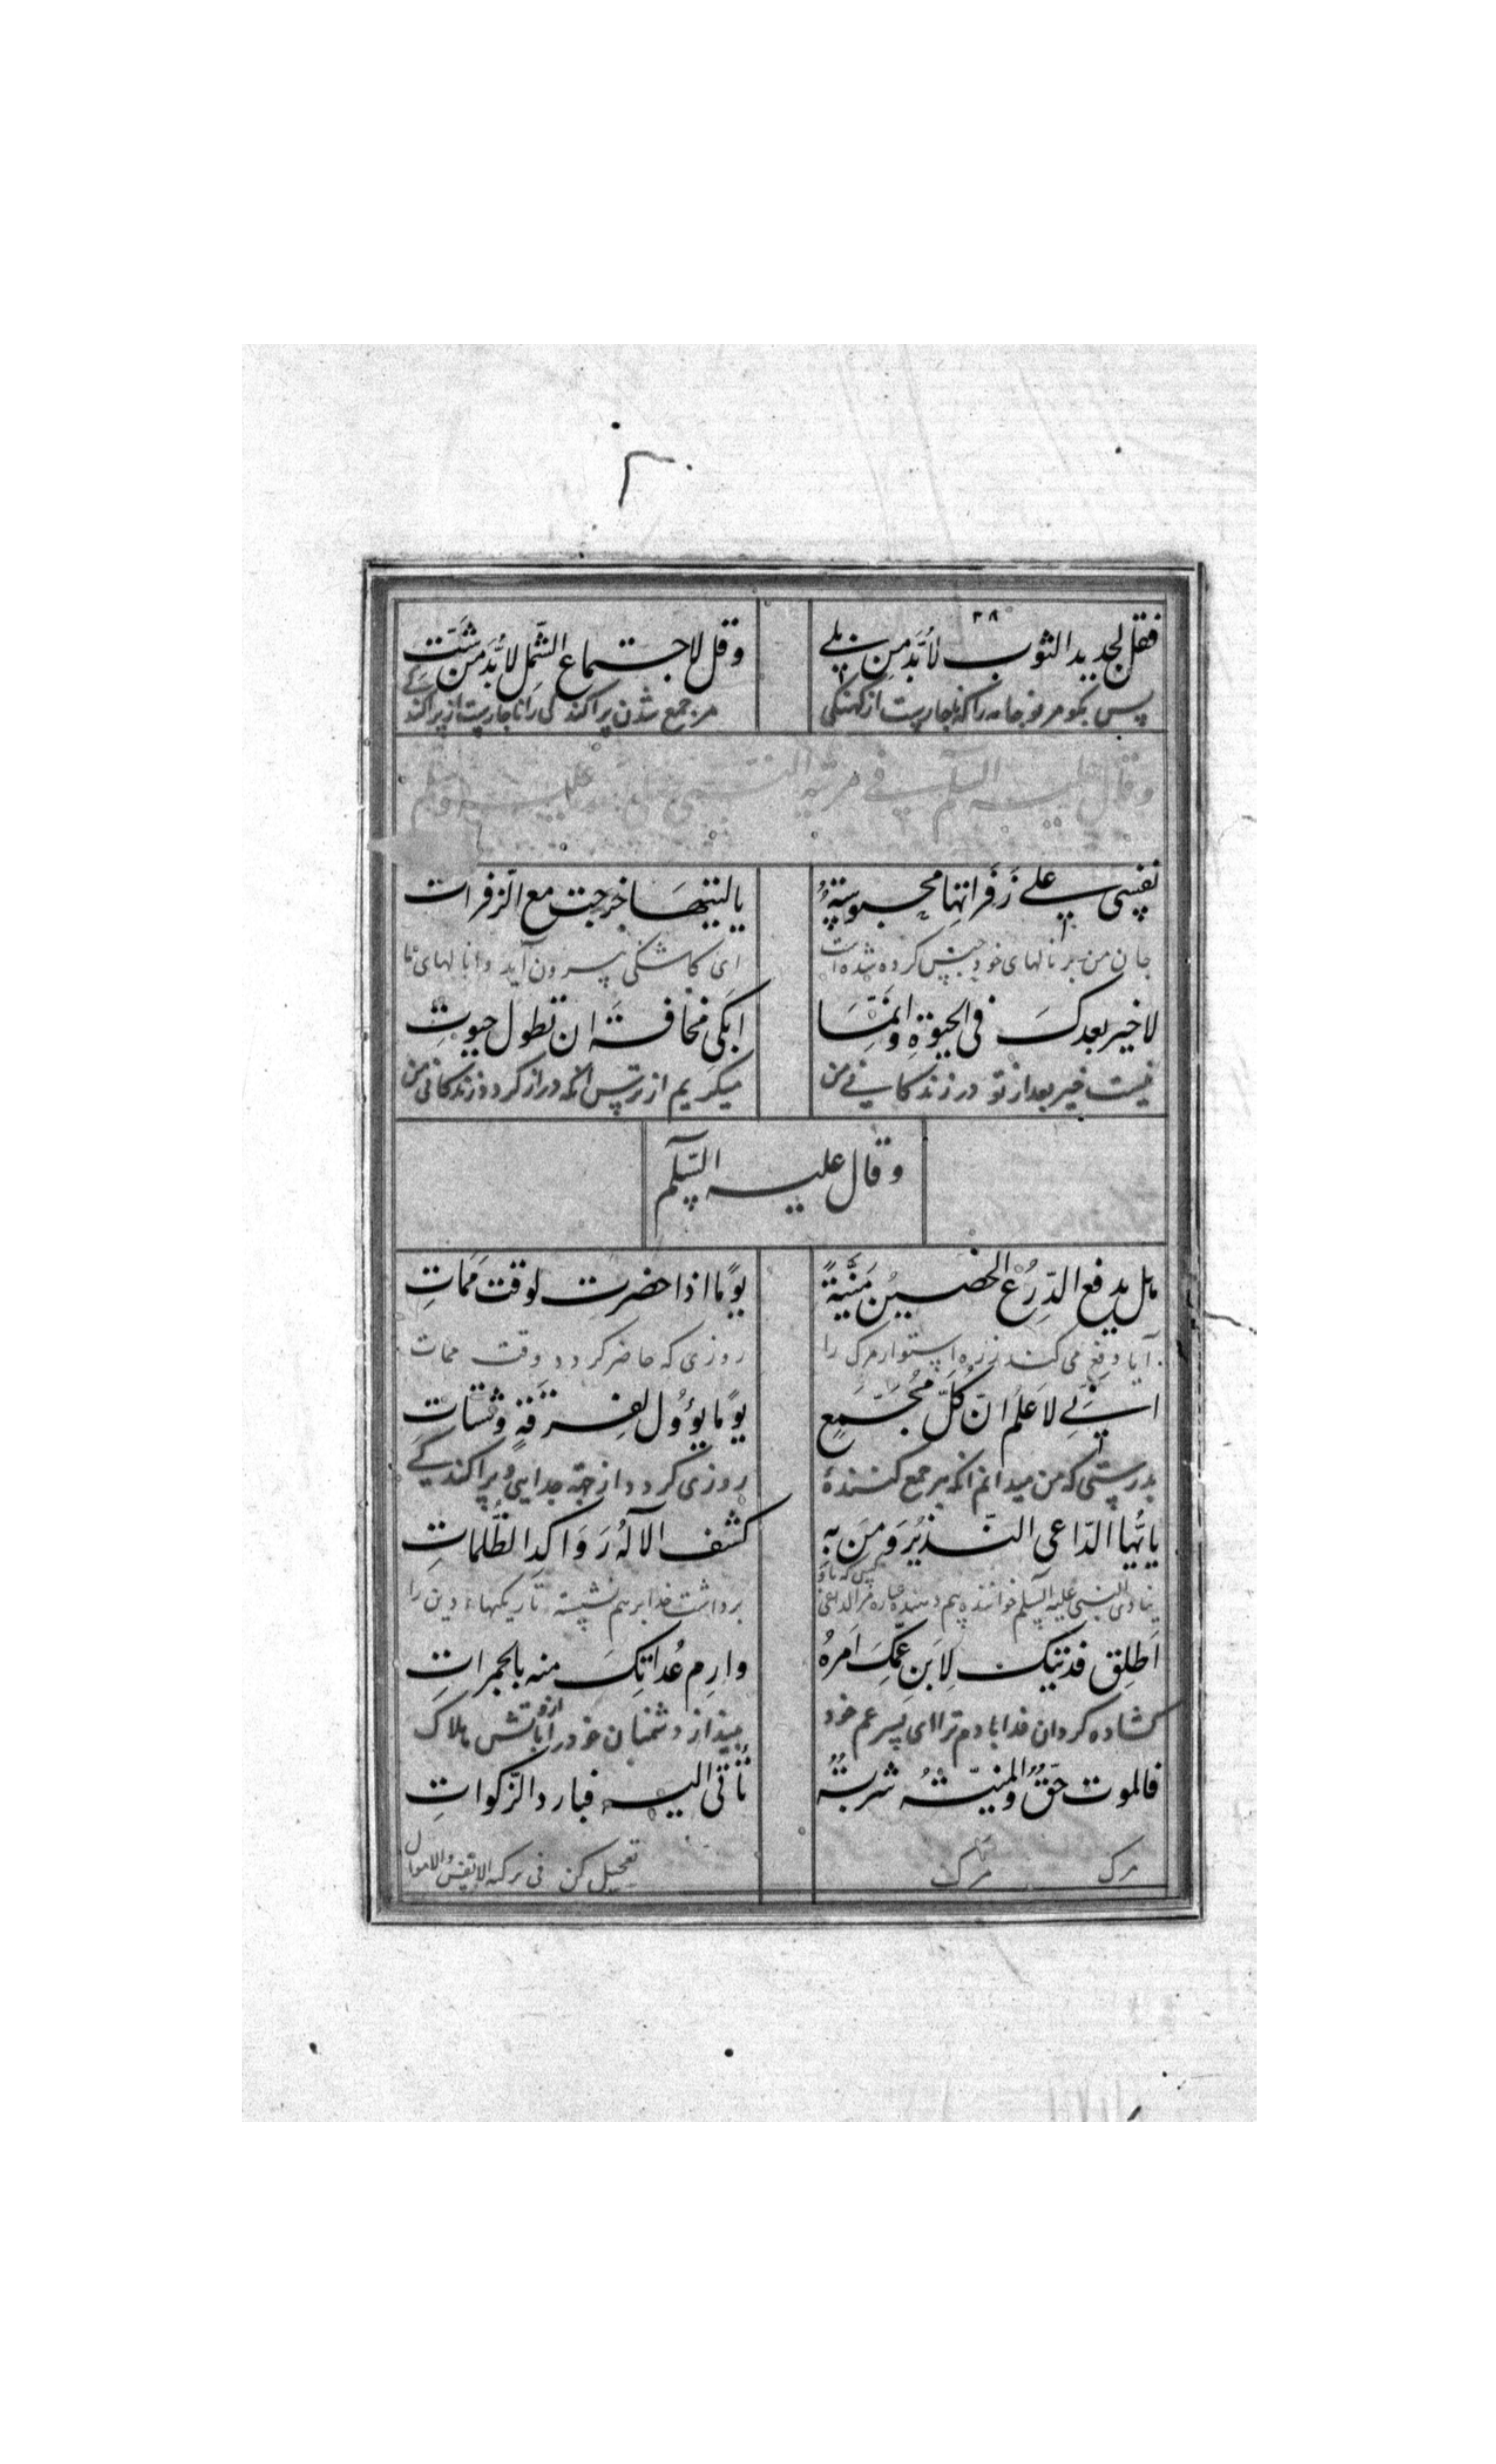 ۳۸
فقل لجدید الثوب لابُدَّ مِن بلی وقل لاجتماع الشّمل لابُدَّ من شَتّت
پس بکو مر نو جامه را که ناچاریست از کهنکی مر جمع شدن پراکند کی را ناچاریست از پراکند کی
وقال علیه السلم فی مرثیة النبی علیه
نفسی علی زَفَراتِها محبوسةٌ یالیتها خرجت مع الزفرات
جان من بر نالهای خود حبس کرده شده است ای کاشکی بیرون آید با نالهای ما
لاخیر بعدکَ فی الحیوةِ وانّمَا ابکی مخافة ان تطول حیوتِ
نیست خیر بعد از تو در زندکانی من میکریم از ترس انکه دراز کردد زندکانی من
وقال علیه السّلم
هل یدفع الدِّرعُ الحصینُ مَنیَّةً یومًا اذا حضرت لوقت مَماتِ
آیا دفع می کند زره استوار مرک را روزی که حاضر کردد وقت ممات
انّی لَاَعلَمُ انّ کُلَّ مُجَمَّعٍ یومًا یؤوُل لِفِرقَةٍ وشتاتِ
بدرستی که من میدانم انکه هر جمع کنندهٔ روزی کردد از جهة جدایی و پراکندکی
یاایّها الدّاعی النّذیرُ وَمَن بِهِ کشف الالٰهُ رَوَاکدَ الظُّلماتِ
علیه السلم خواننده بیم دهنده کسی که باو برداشت خدا بر هم نشسته تاریکیهاء دین را
اَطلِق فدیتک لِابنِ عَمِّکَ اَمرهُ وارمِ عُداتَکَ منه بالجمراتِ
کشاده کردان فدا بادم ترا ای پسر عم خود بینداز دشمنان خود را ازو باتش هلاک
فالموت حقٌّ والمنیّةُ شربةٌ تأتی الیه فبادر الزّکواتِ
مرک مرک تعجیل کن فی تزکیه الانفس والاموال